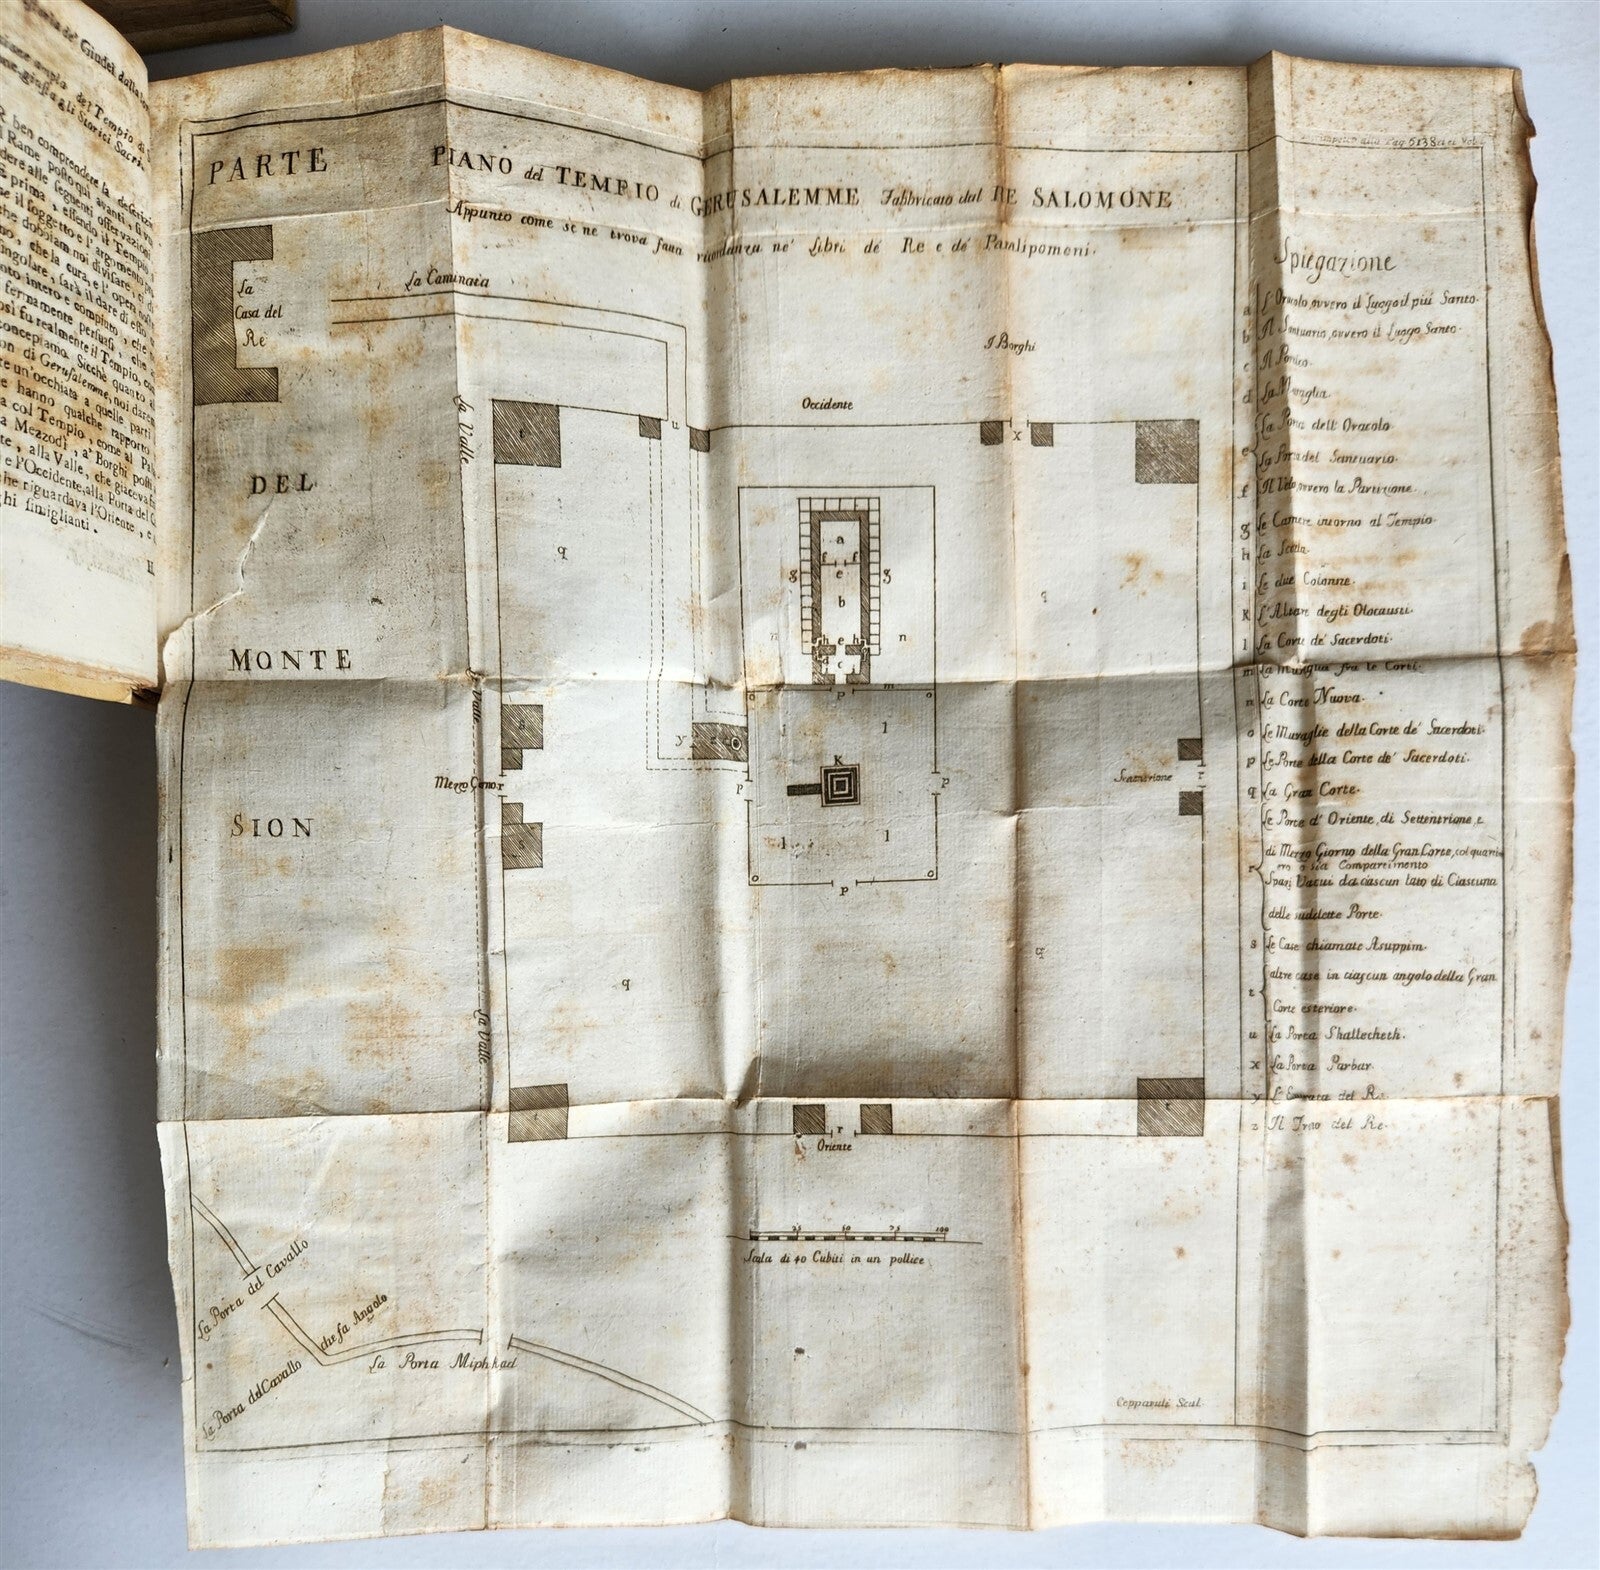 de' Giudei dalla
ampio del Tempio di
giusta gli Storici Sacri.
ben comprendere la descrizi
Rame posto qui avanti, si vu
dere alle seguenti osservazioni
prima, essendo il Tempio,
il soggetto e l'argomento
che dobbiam noi divisare, ci
che la cura, e l'opera nostra
singolare, sarà il dare di esso
intero e compiuto, che
fermamente persuasi, che
fu realmente il Tempio, co
concepiamo. Sicchè quanto al
on di Gerusalemme, noi darem
e un'occhiata a quelle parti
e hanno qualche rapporto
a col Tempio, come al Pal
a Mezzodì, a' Borghi posti
te, alla Valle, che giaceva fr
e l'Occidente, alla Porta del C
he riguardava l'Oriente, e
hi simiglianti.
H
alla Pag 5138
PARTE
DEL
MONTE
SION
PIANO del TEMPIO di GERUSALEMME Fabbricato dal RE SALOMONE
Appunto come se ne trova fatta ricordanza ne' libri de' Re e de' Paralipomeni.
La
Casa del
Re
La Caminata
I Borghi
Occidente
La Valle
La Valle
La Valle
t
u
x
q
q
a
f f
e
g g
b
n n
h e h
c
p m
o o
s
y z
l l
K
Mezzo Giorno r
p p
Settentrione
r
s
l l
o o
p
q
q
t
t
r
Oriente
25 50 75 100
Scala di 40 Cubiti in un pollice
La Porta del Cavallo
che fa Angolo
La Porta del Cavallo
La Porta Miphkad
Cepparuli Scul.
Spiegazione
a L'Oracolo, ovvero il Luogo il più Santo.
b Il Santuario, ovvero il Luogo Santo.
c Il Portico.
d La Muraglia.
e La Porta dell'Oracolo
La Porta del Santuario.
f Il Velo, ovvero la Partizione.
g Le Camere intorno al Tempio.
h La Scala.
i Le due Colonne.
K L'Altare degli Olocausti.
l La Corte de' Sacerdoti.
m La Muraglia fra le Corti.
n La Corte Nuova.
o Le Muraglie della Corte de' Sacerdoti.
p Le Porte della Corte de' Sacerdoti.
q La Gran Corte.
r Le Porte d'Oriente, di Settentrione, e
di Mezzo Giorno della Gran Corte, col quarti
ero o sia Compartimento
Spazj Vacui da ciascun lato di Ciascuna
delle suddette Porte.
s Le Case chiamate Asuppim.
t altre case in ciascun angolo della Gran
Corte esteriore.
u La Porta Shallecheth.
x La Porta Parbar.
y L'Entrata del Re.
z Il Trono del Re.